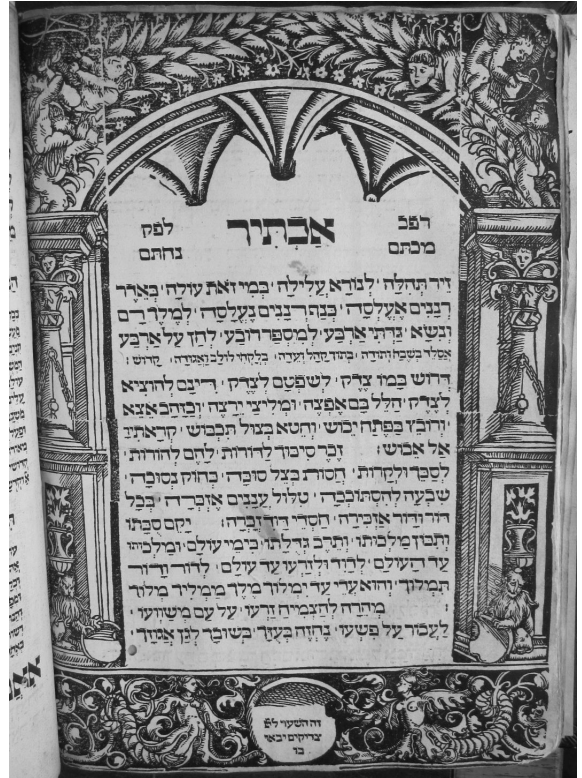 אכתיר
לפק
מכתם
נחתם
זיר תהלה לנורא עלילה במי זאת עולה באדר
רננים אעלסה בנף רננים נעלסה למלך רם
ונשא גדתי ארבע למספר רובע לחן על ארבע
אסלד בשבח ותודה בתוך קהל ועדה בלקחי לולב ואגודה קדוש׃
דרוש במו צדק לשפטם לצדק דינם להוציא
לצדק הלל בם אפצה ומליצי ירצה וכזהב אצא
ורובץ בפתח יכוש וחטא בצול תכבוש קראתיך
אל אבוש׃ זכר סיכוך להורות להם להורות
לספר ולקרות חסות בצל סוכה בחוק נסובה
שבעה להסתובבה טלול עננים אזכרה בכל
דור ודור אזכירה חסדי דוד זכרה׃ יקם סכתו
ותכון מלכותו ותרב גדלתו בימי עולם ומלכותו
עד העולם לדוד ולזרעו עד עולם לדור ודור
תמלוך והוא עדי עד ימלוך מלך ממליך מלוך
מהרה להצמיח זרעו על עם משוועו
לעבור על פשעו נחזה בעזך בשוכך לגן אגוזך
זה השער לה
צדיקים יבאו
בו